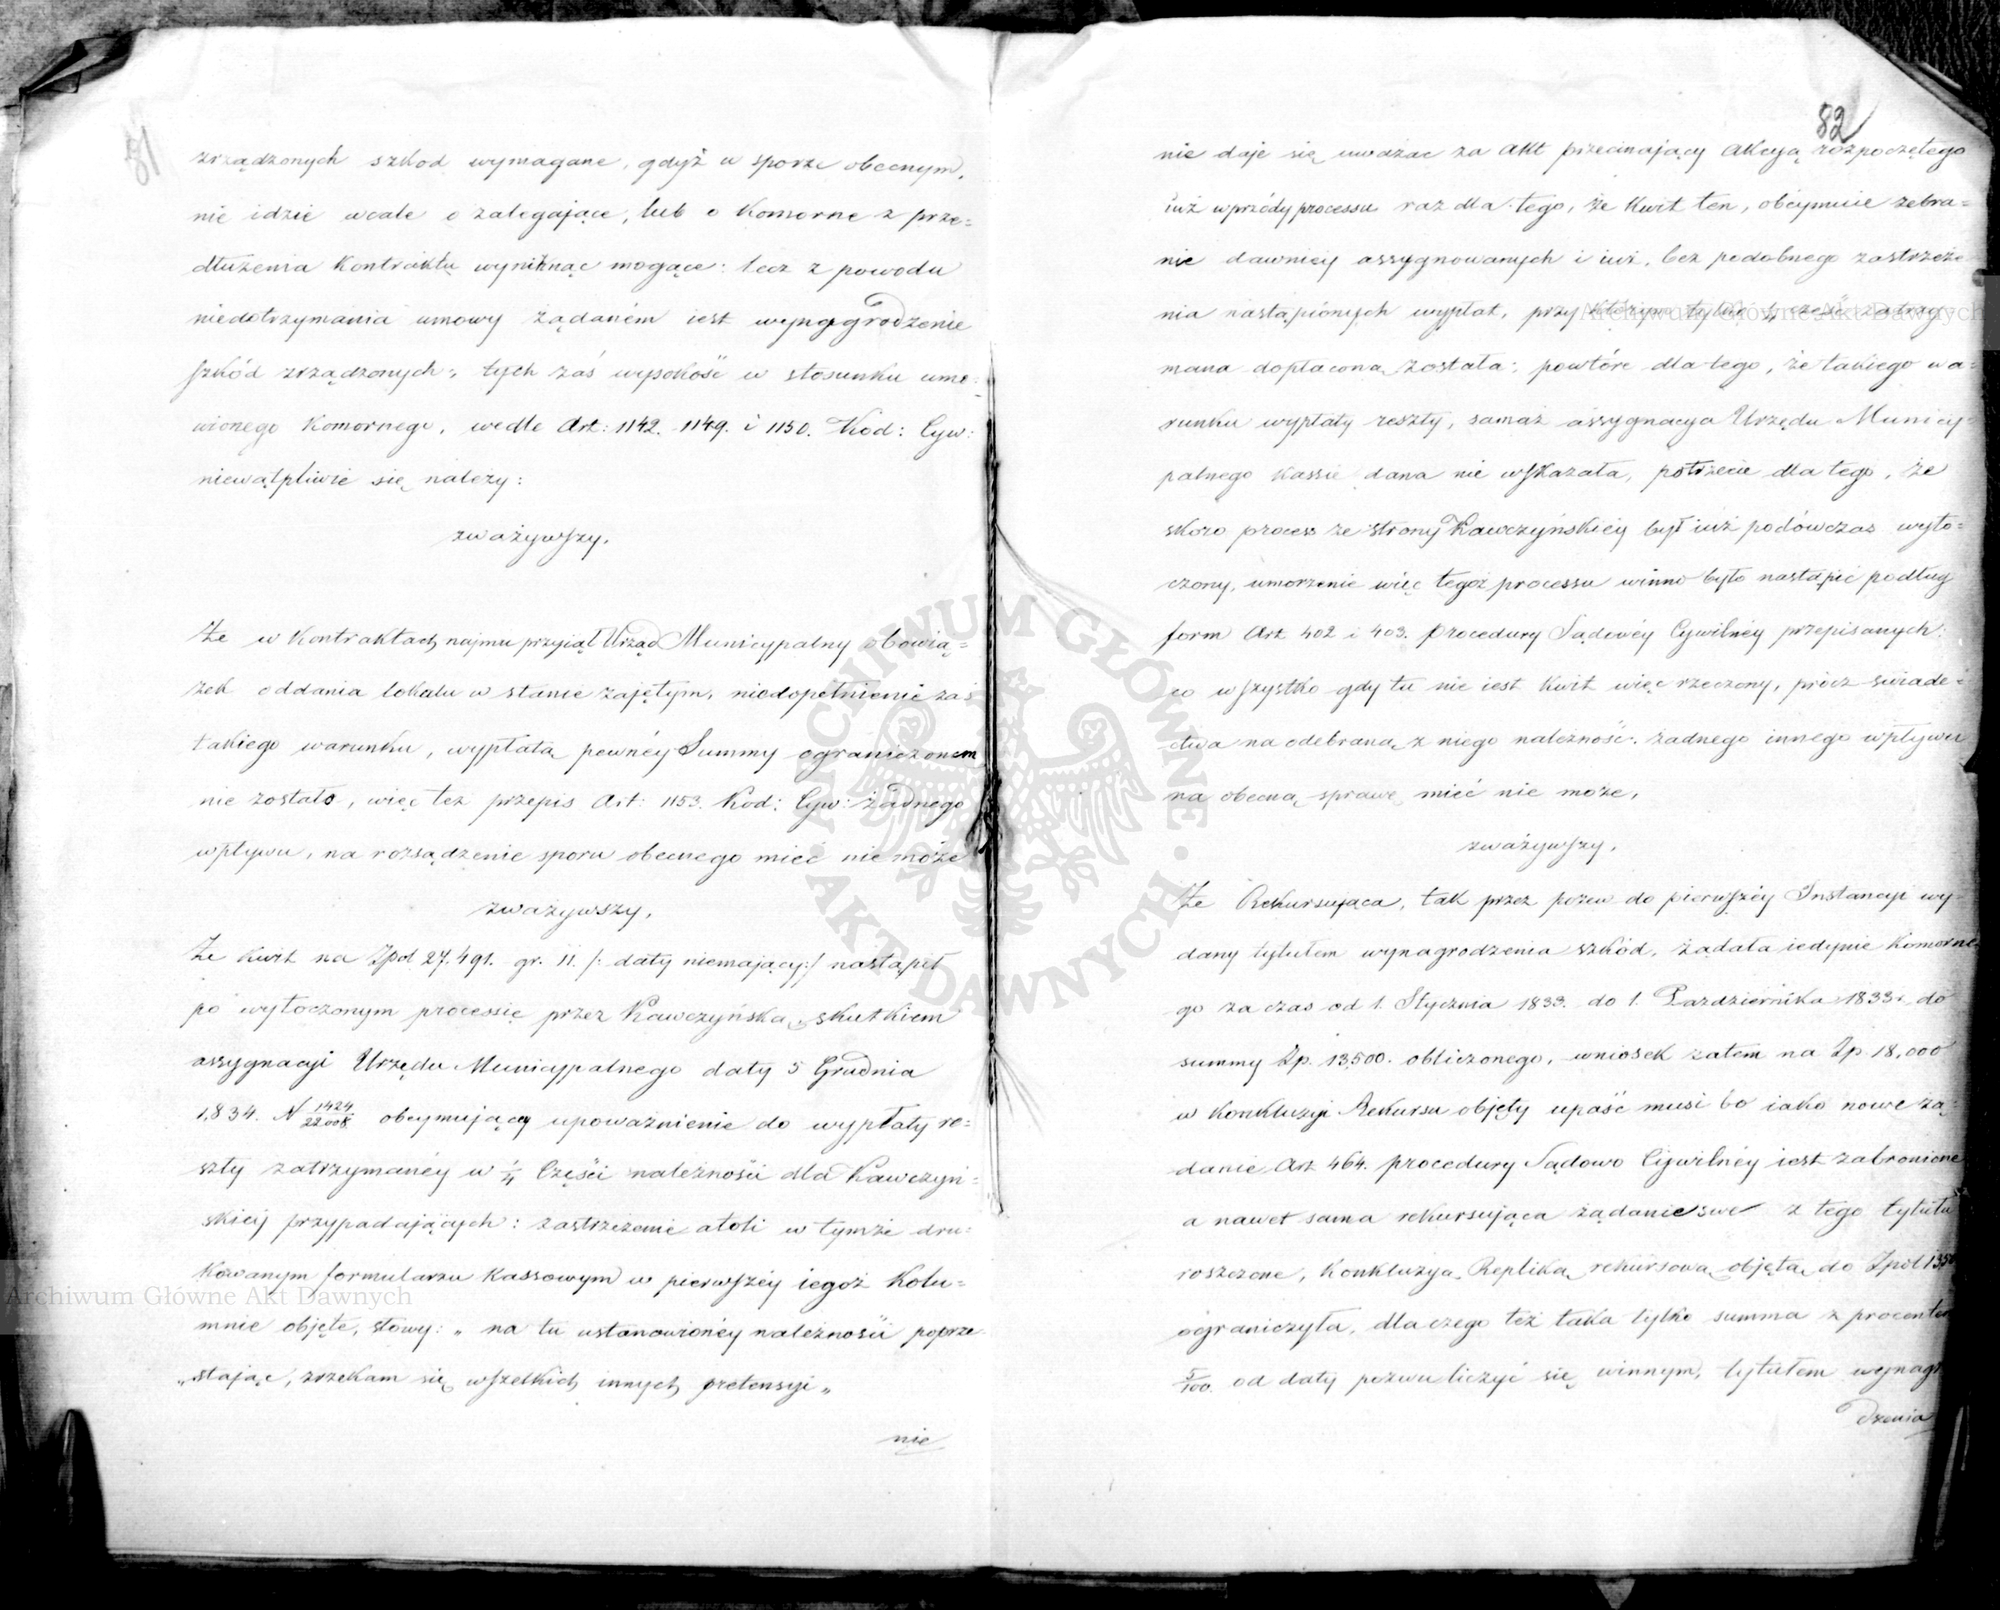 81
zrządzonych szkod wymagane, gdyż w sporze obecnym,
nie idzie wcale o zalegające, lub o Komorne z prze=
dłużenia Kontraktu wyniknąc mogące: lecz z powodu
niedotrzymania umowy żądaném iest wynagrodzenie
szkód zrządzonych, tych zaś wysokość w stosunku umo=
wionego Komornego, wedle Art: 1142. 1149. i 1150. Kod: Cyw:
niewątpliwie się należy:
zważywszy,
Że w Kontraktach najmu przyiął Urząd Municypalny obowią=
zek oddania lokalu w stanie zajętym, niedopełnienie zaś
takiego warunku, wypłatą pewnéy Summy ograniczonem
nie zostało, więc też przepis Art: 1153. Kod: Cyw: żadnego
wpływu, na rozsądzenie sporu obecnego mieć nie może
zważywszy,
Że Kwit na Zpol 27.491. gr. 11. /: daty niemający:/ nastąpił
po wytoczonym processie przez Kawczyńską, skutkiem
assygnacyi Urzędu Municypalnego daty 5 Grudnia
1,834. N 1424/22008. obeymującey upoważnienie do wypłaty re=
szty zatrzymanéy w 1/4 Części należności dla Kawczyń=
skiéy przypadających: zastrzeżenie atoli w tymże dru=
kowanym formularzu Kassowym w pierwszéy iegoż Kolu=
mnie objęte, słowy: „ na tu ustanowionéy należności poprze
„stając, zrzekam się wszelkich innych pretensyi„
nie
82
nie daje się uważać za Akt przecinający Akcyą rozpoczętego
iuż wprzódy processu raz dla tego, że Kwit ten, obeymuie zebra=
nie dawniéy assygnowanych i iuż, bez podobnego zastrzeże
nia nastąpiónych wypłat, przy którym tylko 1/4 część zatrzy=
mana dopłaconą została; powtóre dla tego, że takiego wa=
runku wypłaty reszty, samaż assygnacya Urzędu Municy=
palnego Kassie dana nie wskazała, potrzecie dla tego, że
skoro process ze strony Kawczyńskiéy był iuż podówczas wyto=
czony, umorzenie więc tegoż processu winno było nastąpić podług
form Art 402 i 403. Procedury Sądowéy Cywilnéy przepisanych:
co wszystko gdy tu nie iest Kwit więc rzeczony, prócz swiade=
ctwa na odebraną z niego należność, żadnego innego wpływu
na obecną sprawę mieć nie może,
zważywszy,
Że Rekursująca, tak przez pozew do pierwszéy Instancyi wy=
dany tytułem wynagrodzenia szkód, żądała iedynie Komorne
go za czas od 1. Stycznia 1833. do 1. Pazdziernika 1833 r. do
summy Zp. 13,500. obliczonego, wniosek zatem na Zp 18,000
w Konkluzyi Rekursu objęty upaść musi bo iako nowe żą=
danie Art 464. procedury Sądowo Cywilnéy iest zabronione
a nawet sama rekursująca żądanie swe z tego tytułu
roszczone, Konkluzyą Repliką rekursową objętą do Zpol 13,50
ograniczyła, dla czego też taka tylko summa z procentem
5/100. od daty pozwu liczyć się winnym, tytułem wynagr
dzenia
Archiwum Główne Akt Dawnych
Archiwum Główne Akt Dawnych
ARCHIWUM GŁÓWNE · AKT DAWNYCH ·